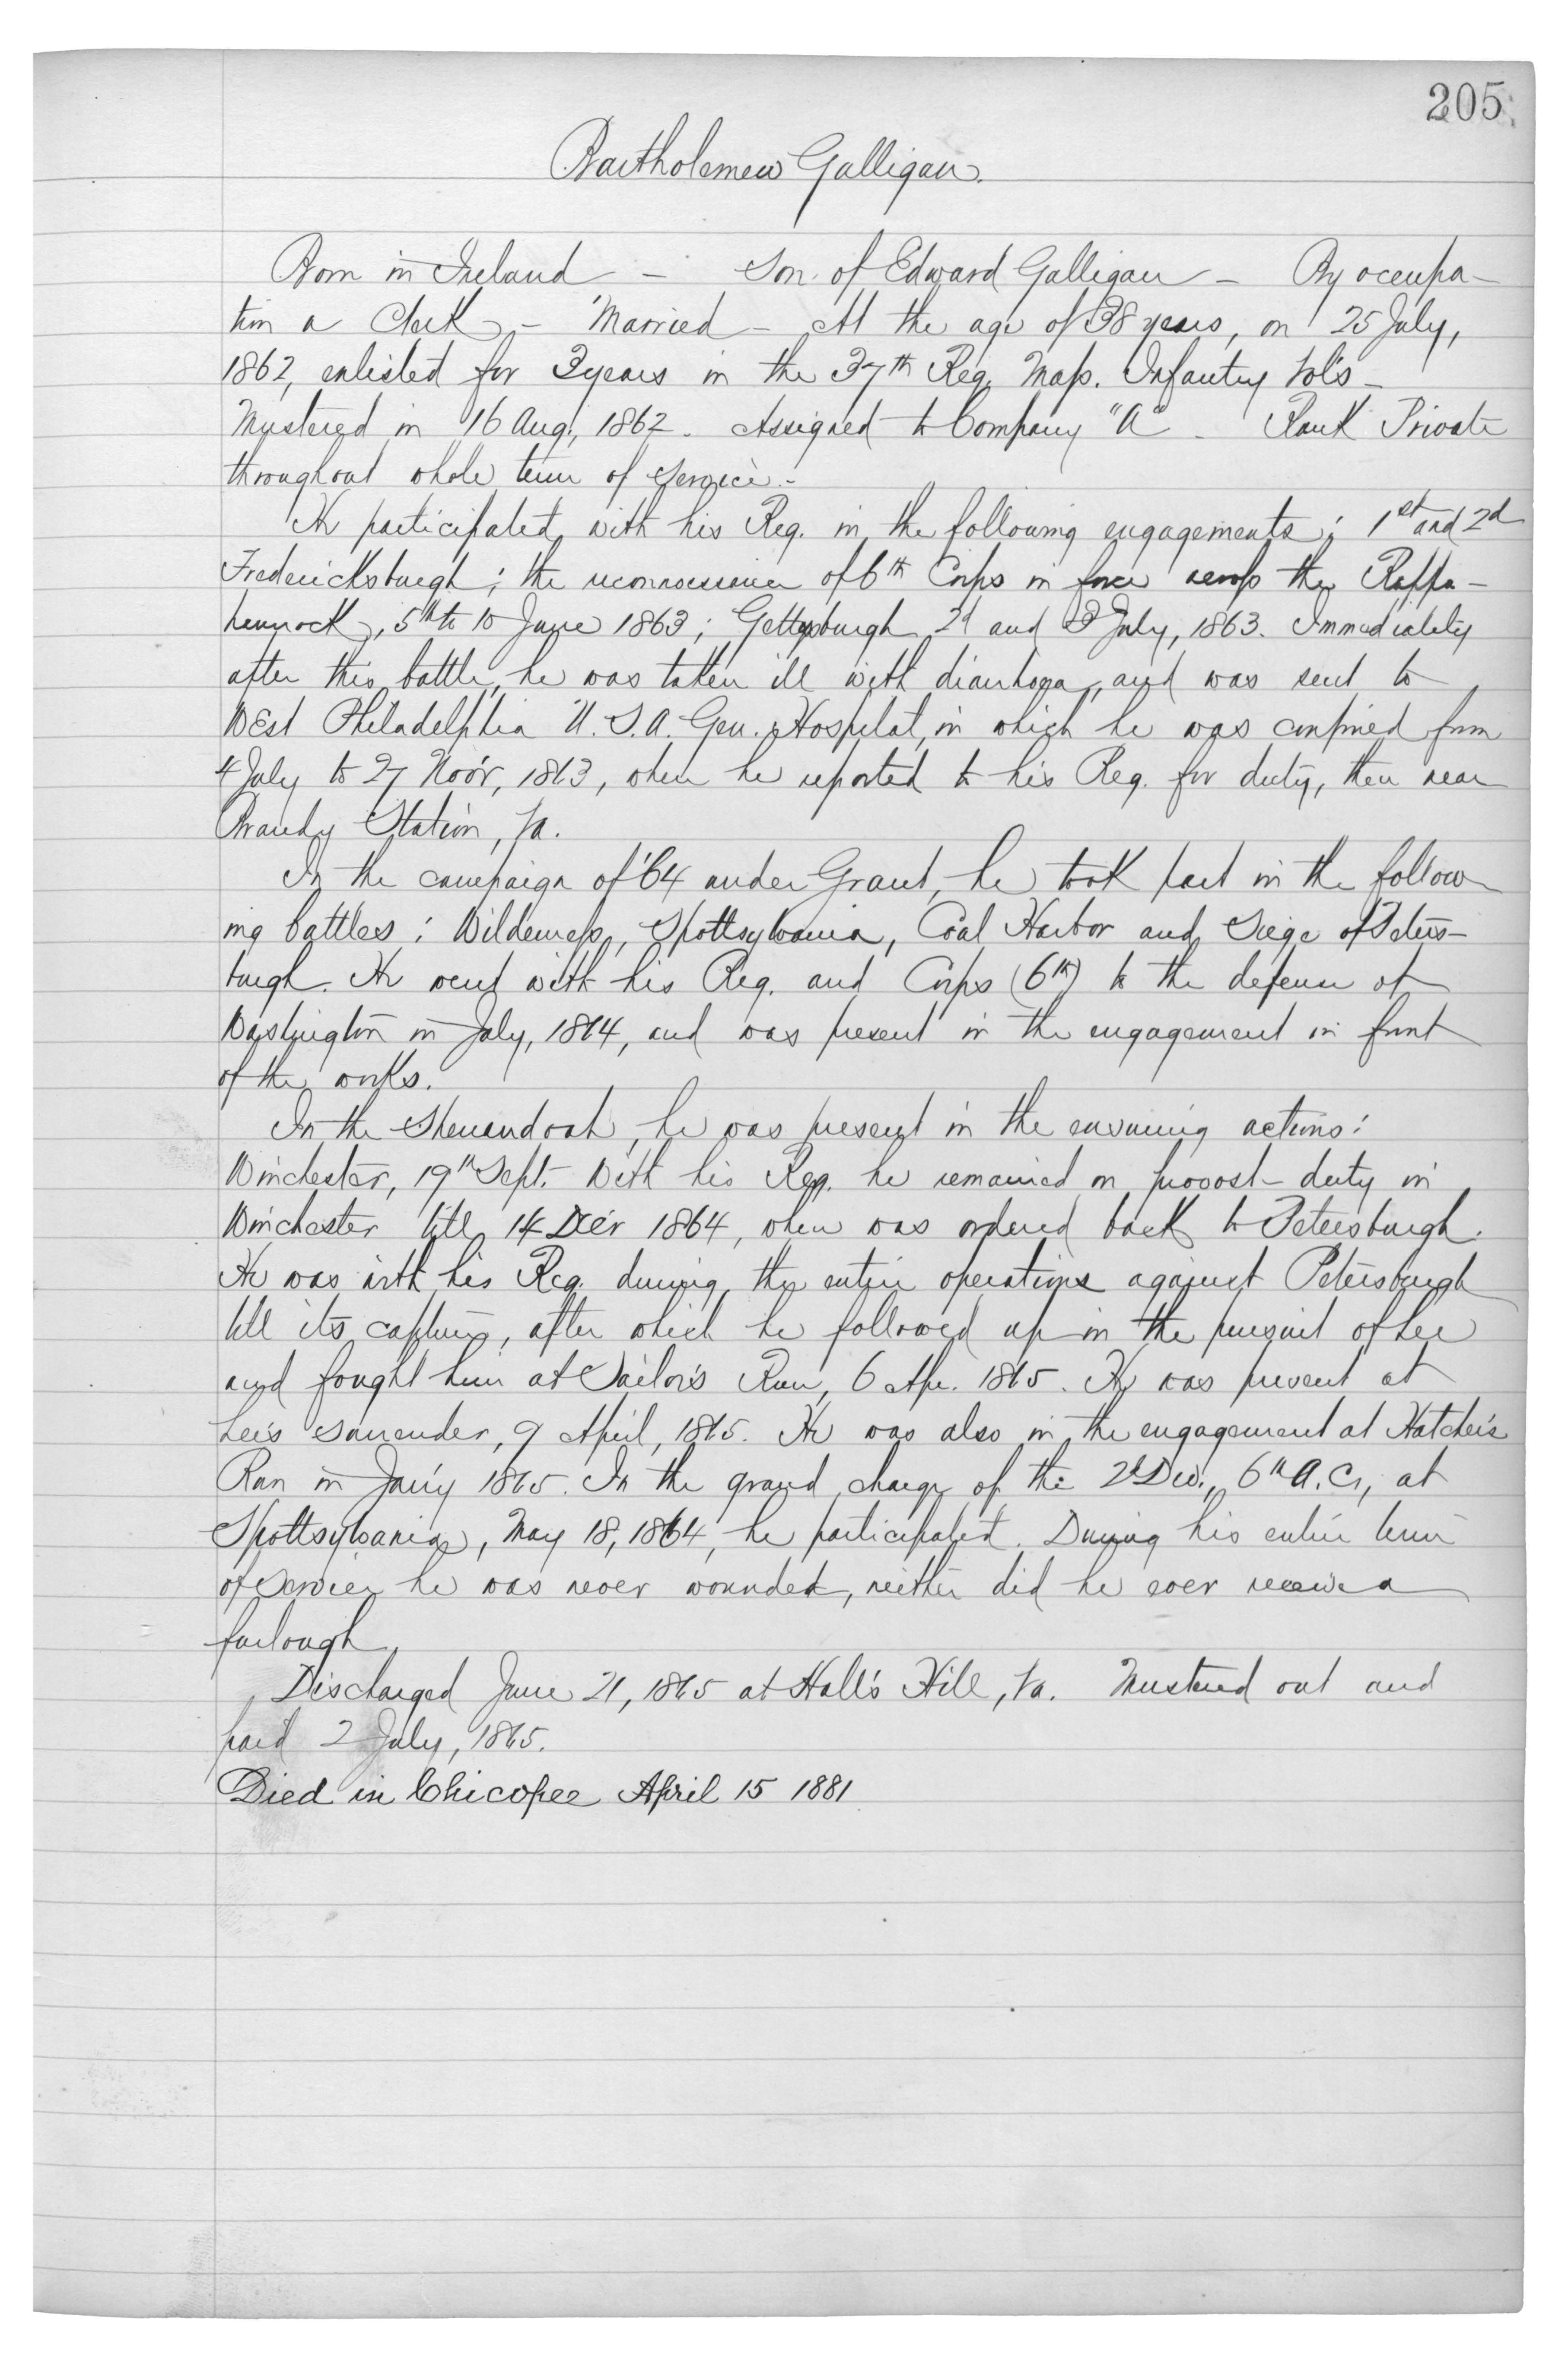 205
Bartholemew Galligan.
Born in Ireland — Son of Edward Galligan — By occupa-
tion a Clerk, — Married — At the age of 38 years, on 25 July,
1862, enlisted for 3 years in the 37th Reg. Mass. Infantry Vol's —
Mustered in 16 Aug., 1862. Assigned to Company "A" — Rank Private
throughout whole term of service. —
He participated with his Reg. in the following engagements; 1st and 2d
Fredericksburgh; the reconnoissance of 6th Corps in force across the Rappa-
hannock, 5th to 10 June 1863; Gettysburgh 2d and 3 July, 1863. Immediately
after this battle, he was taken ill with diarrhoea, and was sent to
West Philadelphia U.S.A. Gen. Hospital, in which he was confined from
4 July to 27 Nov'r, 1863, when he reported to his Reg. for duty, then near
Brandy Station, Va.
In the campaign of '64 under Grant, he took part in the follow-
ing battles: Wilderness, Spottsylvania, Coal Harbor and Siege of Peters-
burgh. He went with his Reg. and Corps (6th) to the defense of
Washington in July, 1864, and was present in the engagement in front
of the works.
In the Shenandoah, he was present in the ensuing actions:
Winchester, 19th Sept. With his Reg. he remained on provost-duty in
Winchester till 14 Dec'r 1864, when was ordered back to Petersburgh.
He was with his Reg. during the entire operations against Petersburgh
till its capture, after which he followed up in the pursuit of Lee
and fought him at Sailor's Run, 6 Apr. 1865. He was present at
Lee's surrender, 9 April, 1865. He was also in the engagement at Hatcher's
Run in Jan'y 1865. In the grand charge of the 2d Div., 6th A.C., at
Spottsylvania, May 18, 1864, he participated. During his entire term
of service he was never wounded, neither did he ever receive a
furlough.
Discharged June 21, 1865 at Hall's Hill, Va. Mustered out and
paid 2 July, 1865.
Died in Chicopee April 15 1881